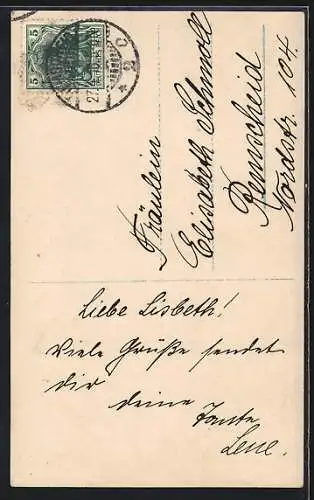 Fräulein
Elisabeth Schmoll
Remscheid
Nordstr. 104.
Liebe Lisbeth!
Viele Grüße sendet
dir
deine Tante
Lene.
5 5
27.